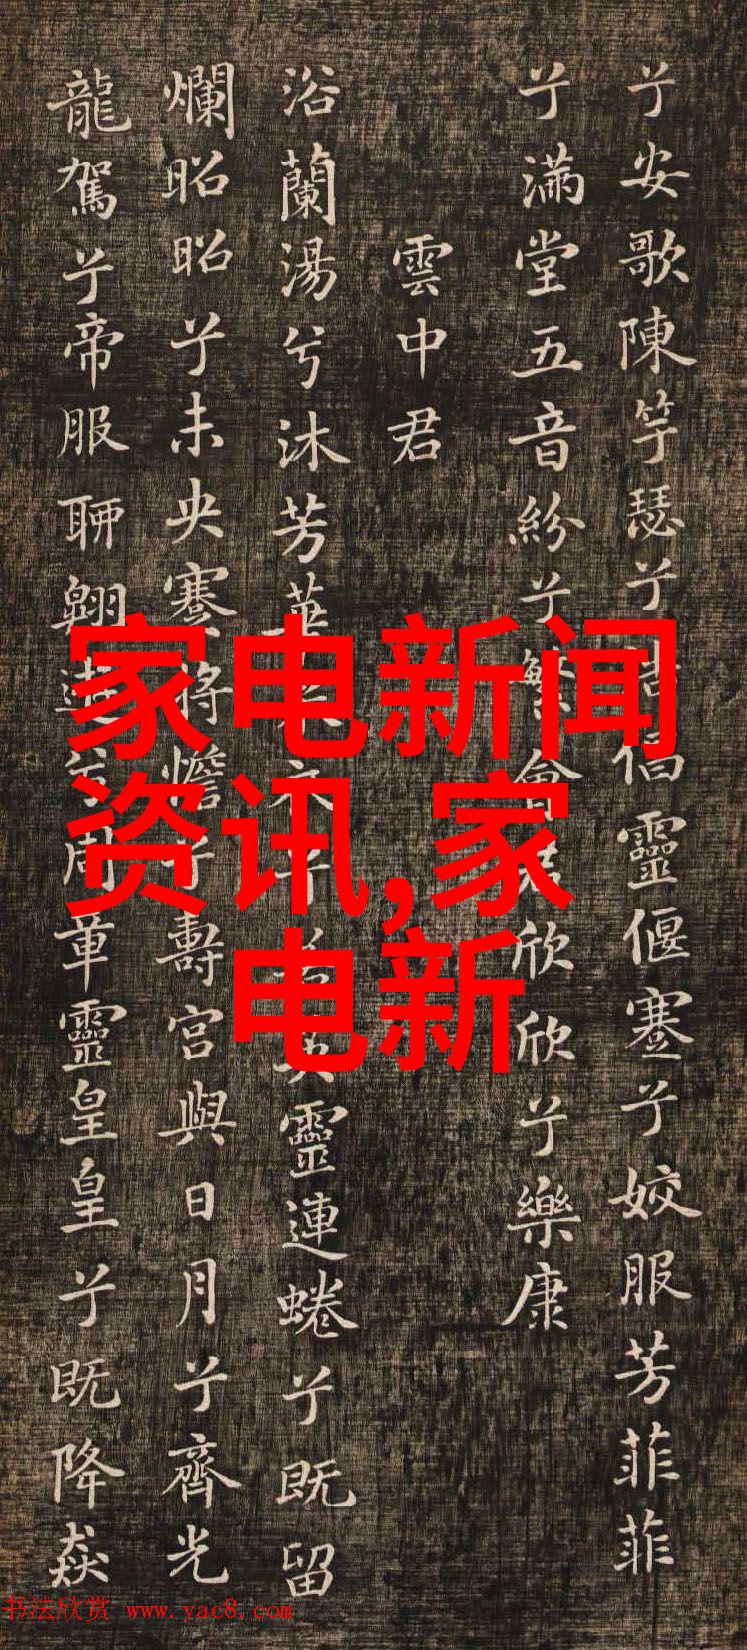 兮安歌陳竽瑟兮浩倡靈偃蹇兮姣服芳菲菲
兮滿堂五音紛兮繁會君欣欣兮樂康
雲中君
浴蘭湯兮沐芳華采衣兮若英靈連蜷兮既留
爛昭昭兮未央蹇將憺兮壽宮與日月兮齊光
龍駕兮帝服聊翱遊兮周章靈皇皇兮既降猋
家电新闻
资讯,家
电新
书法欣赏 www.yac8.com